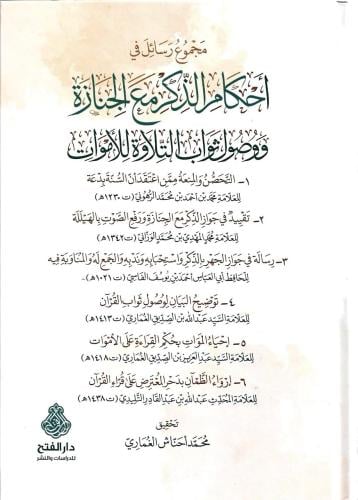 مجموع رسائل في
أحكام الذكر مع الجنازة
ووصول ثواب التلاوة للأموات
١- التحصن والمنعة ممن اعتقد أن السنة بدعة
للعلامة محمد بن أحمد بن محمد الرهوني (ت ١٢٣٠هـ)
٢- تقييد في جواز الذكر مع الجنازة ورفع الصوت بالهيللة
للعلامة محمد المهدي بن محمد الوزاني (ت ١٣٤٢هـ)
٣- رسالة في جواز الجهر بالذكر واستحبابه وندبه والجمع له والمناوبة فيه
للحافظ أبي العباس أحمد بن يوسف الفاسي (ت ١٠٢١هـ)
٤- توضيح البيان لوصول ثواب القرآن
للعلامة السيد عبد الله بن الصديق الغماري (ت ١٤١٣هـ)
٥- إحياء الموات بحكم القراءة على الأموات
للعلامة السيد عبد العزيز بن الصديق الغماري (ت ١٤١٨هـ)
٦- إرواء الظمآن بدحر المعترض على قراء القرآن
للعلامة المحدث عبد الله بن عبد القادر التليدي (ت ١٤٣٨هـ)
تحقيق
محمد أحناش الغماري
دار الفتح
للدراسات والنشر